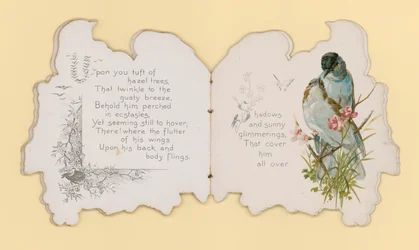 pon you tuft of
hazel trees,
That twinkle to the
gusty breeze,
Behold him perched
in ecstasies,
Yet seeming still to hover,
There! where the flutter
of his wings
Upon his back and
body flings
hadows
and sunny
glimmerings,
That cover
him
all over